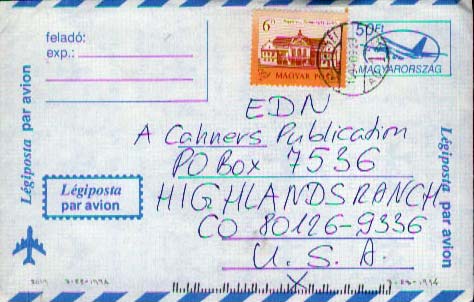 feladó:
exp.:
6 Ft
MAGYAR POSTA
50 Ft
MAGYARORSZÁG
Légiposta par avion
Légiposta
par avion
EDN
A Cahners Publication
PO Box 7536
HIGHLANDS RANCH
CO 80126-9336
U. S. A.
Légiposta par avion